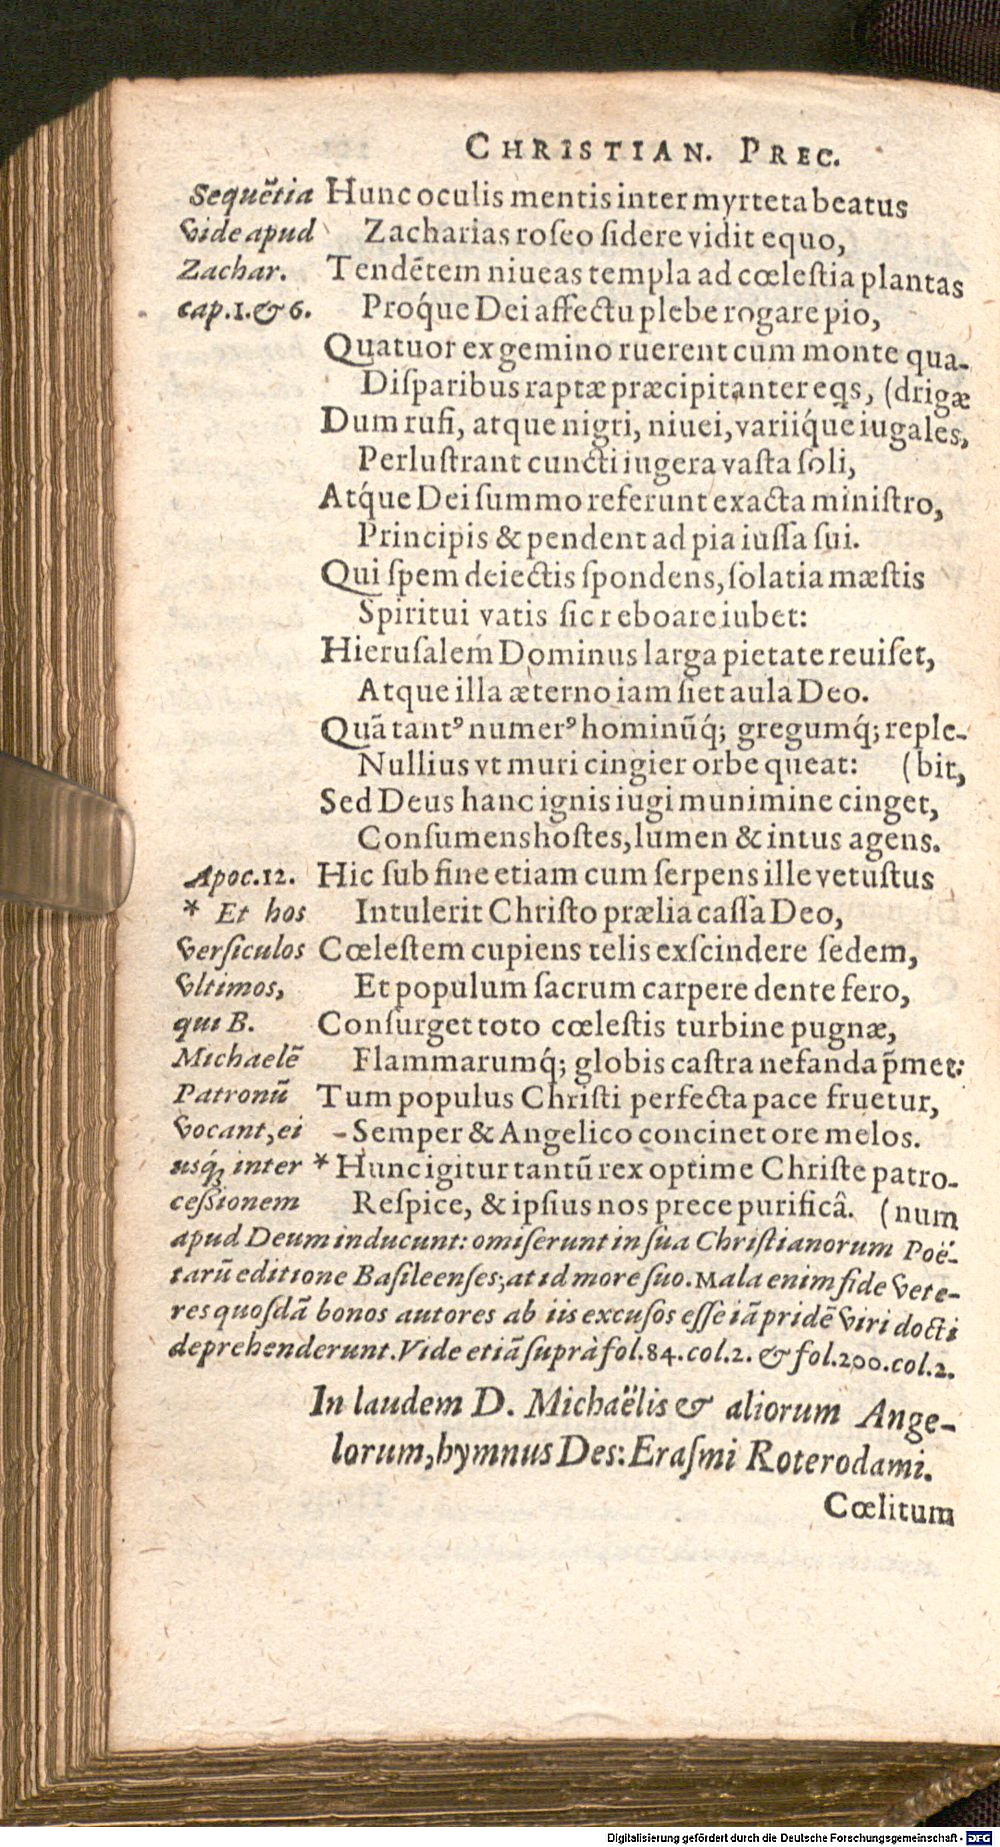 CHRISTIAN. PREC.
Sequẽtia Hunc oculis mentis inter myrteta beatus
Vide apud Zacharias roſeo ſidere vidit equo,
Zachar. Tendẽtem niueas templa ad cœleſtia plantas
cap.1.& 6. Proq́ue Dei affectu plebe rogare pio,
Quatuor ex gemino ruerent cum monte qua-
Diſparibus raptæ præcipitanter eqs, (drigæ
Dum rufi, atque nigri, niuei, variiq́ue iugales,
Perluſtrant cuncti iugera vaſta ſoli,
Atq́ue Dei ſummo referunt exacta miniſtro,
Principis & pendent ad pia iuſſa ſui.
Qui ſpem deiectis ſpondens, ſolatia mæſtis
Spiritui vatis ſic reboare iubet:
Hieruſalem Dominus larga pietate reuiſet,
Atque illa æterno iam fiet aula Deo.
Quã tantꝰ numerꝰ hominũq́; gregumq́; reple-
Nullius vt muri cingier orbe queat: (bit,
Sed Deus hanc ignis iugi munimine cinget,
Conſumens hoſtes, lumen & intus agens.
Apoc.12. Hic ſub fine etiam cum ſerpens ille vetuſtus
* Et hos Intulerit Chriſto prælia caſſa Deo,
Verſiculos Cœleſtem cupiens telis exſcindere ſedem,
Vltimos, Et populum ſacrum carpere dente fero,
qui B. Conſurget toto cœleſtis turbine pugnæ,
Michaelẽ Flammarumq́; globis caſtra nefanda p̃met:
Patronũ Tum populus Chriſti perfecta pace fruetur,
Vocant, ei Semper & Angelico concinet ore melos.
usq́; inter * Hunc igitur tantũ rex optime Chriſte patro-
ceſſionem Reſpice, & ipſius nos prece purificâ. (num
apud Deum inducunt: omiſerunt in ſua Chriſtianorum Poë-
tarũ editione Baſileenſes; at id more ſuo. Mala enim fide Vete-
res quoſdã bonos autores ab iis excuſos eſſe iã pridẽ Viri docti
deprehenderunt. Vide etiã ſuprà fol.84.col.2. & fol.200.col.2.
In laudem D. Michaëlis & aliorum Ange-
lorum, hymnus Des: Eraſmi Roterodami.
Cœlitum
Digitalisierung gefördert durch die Deutsche Forschungsgemeinschaft - DFG